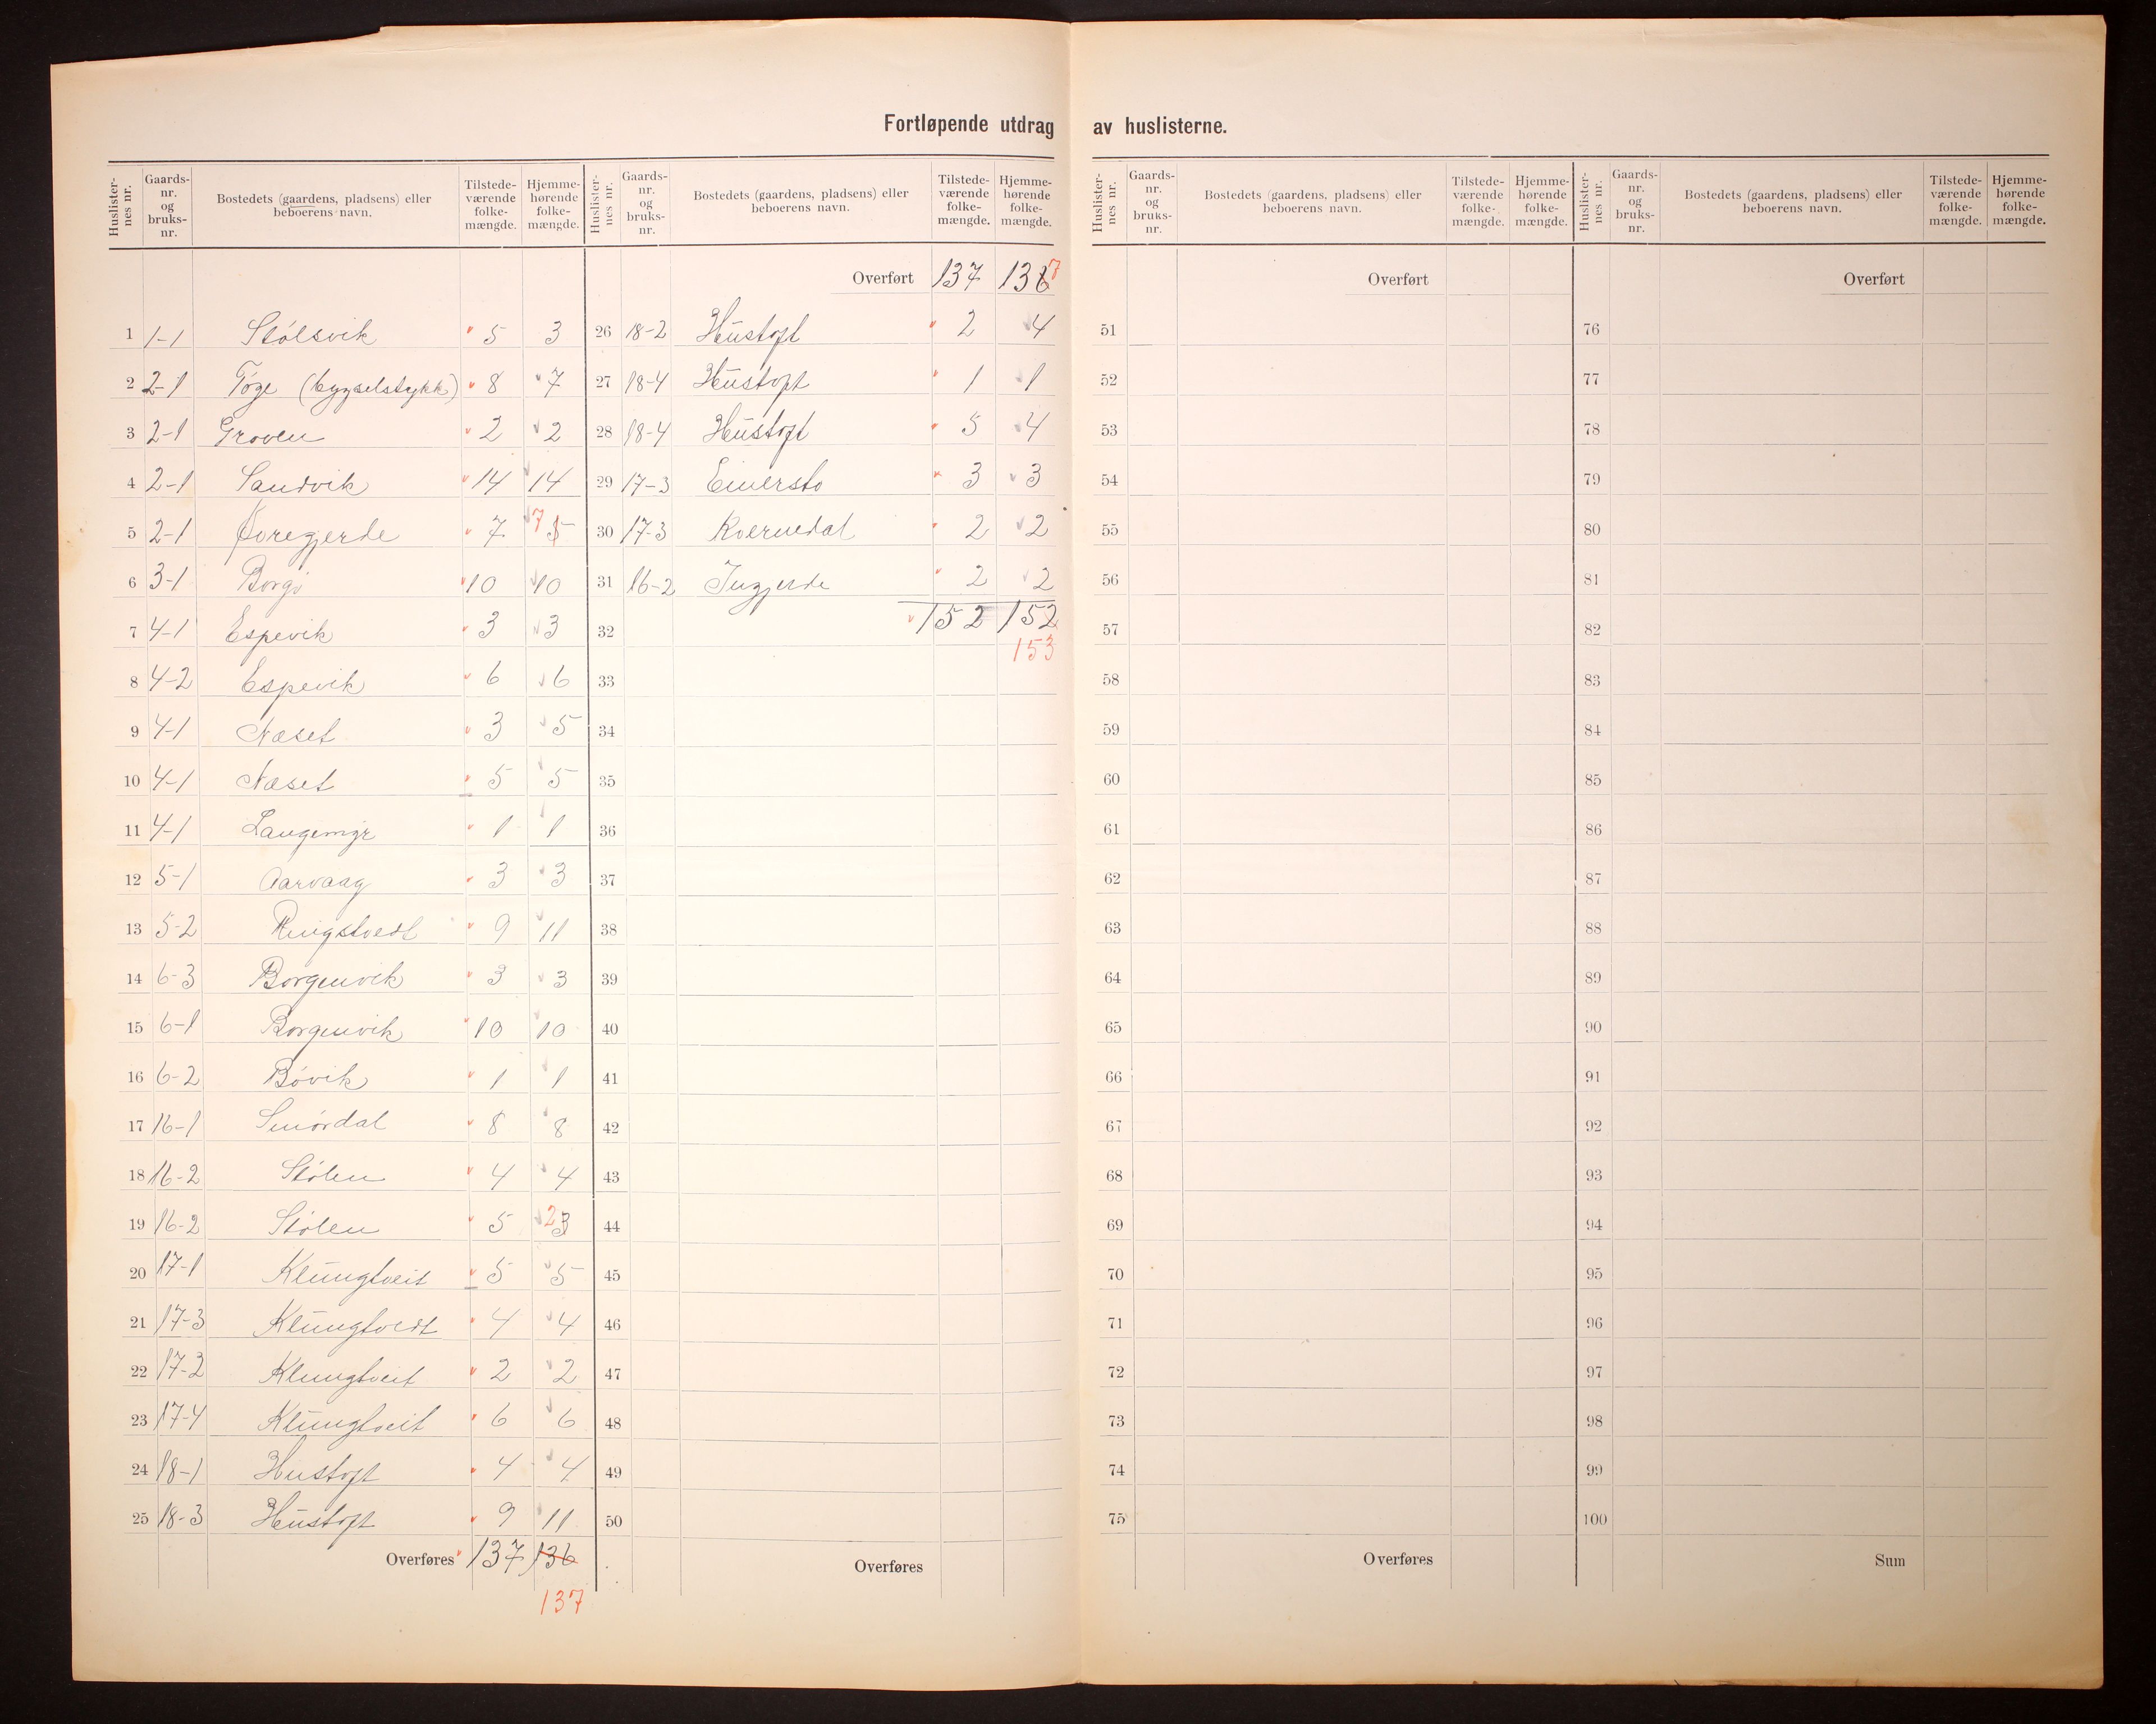 Fortløpende utdrag av huslisterne.
Huslister-nes nr. Gaards-nr. og bruks-nr. Bostedets (gaardens, pladsens) eller beboerens navn. Tilstede-værende folke-mængde. Hjemme-hørende folke-mængde.
1 1-1 Stölsvik 5 3
2 2-1 Töge (bygselstykk) 8 7
3 2-1 Groven 2 2
4 2-1 Sandvik 14 14
5 2-1 Øvregjerde 7 7 5
6 3-1 Borgö 10 10
7 4-1 Espevik 3 3
8 4-2 Espevik 6 6
9 4-1 Næset 3 5
10 4-1 Næset 5 5
11 4-1 Langemyr 1 1
12 5-1 Aarvaag 3 3
13 5-2 Ringstvedt 9 11
14 6-3 Borgenvik 3 3
15 6-1 Borgenvik 10 10
16 6-2 Bövik 1 1
17 16-1 Smördal 8 8
18 16-2 Stölen 4 4
19 16-2 Stölen 5 2 3
20 17-1 Klungtveit 5 5
21 17-3 Klungtvedt 4 4
22 17-2 Klungtveit 2 2
23 17-4 Klungtveit 6 6
24 18-1 Hustoft 4 4
25 18-3 Hustoft 9 11
Overføres 137 136
137
Huslister-nes nr. Gaards-nr. og bruks-nr. Bostedets (gaardens, pladsens) eller beboerens navn. Tilstede-værende folke-mængde. Hjemme-hørende folke-mængde.
Overført 137 136 7
26 18-2 Hustoft 2 4
27 18-4 Hustoft 1 1
28 18-4 Hustoft 5 4
29 17-3 Einersto 3 3
30 17-3 Kvernedal 2 2
31 16-2 Ingjerde 2 2
32 152 152
153
33
34
35
36
37
38
39
40
41
42
43
44
45
46
47
48
49
50
Overføres
Huslister-nes nr. Gaards-nr. og bruks-nr. Bostedets (gaardens, pladsens) eller beboerens navn. Tilstede-værende folke-mængde. Hjemme-hørende folke-mængde.
Overført
51
52
53
54
55
56
57
58
59
60
61
62
63
64
65
66
67
68
69
70
71
72
73
74
75
Overføres
Huslister-nes nr. Gaards-nr. og bruks-nr. Bostedets (gaardens, pladsens) eller beboerens navn. Tilstede-værende folke-mængde. Hjemme-hørende folke-mængde.
Overført
76
77
78
79
80
81
82
83
84
85
86
87
88
89
90
91
92
93
94
95
96
97
98
99
100
Sum